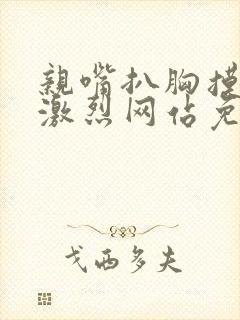 親嘴扒胸摸
激烈网佔免
戈西多夫